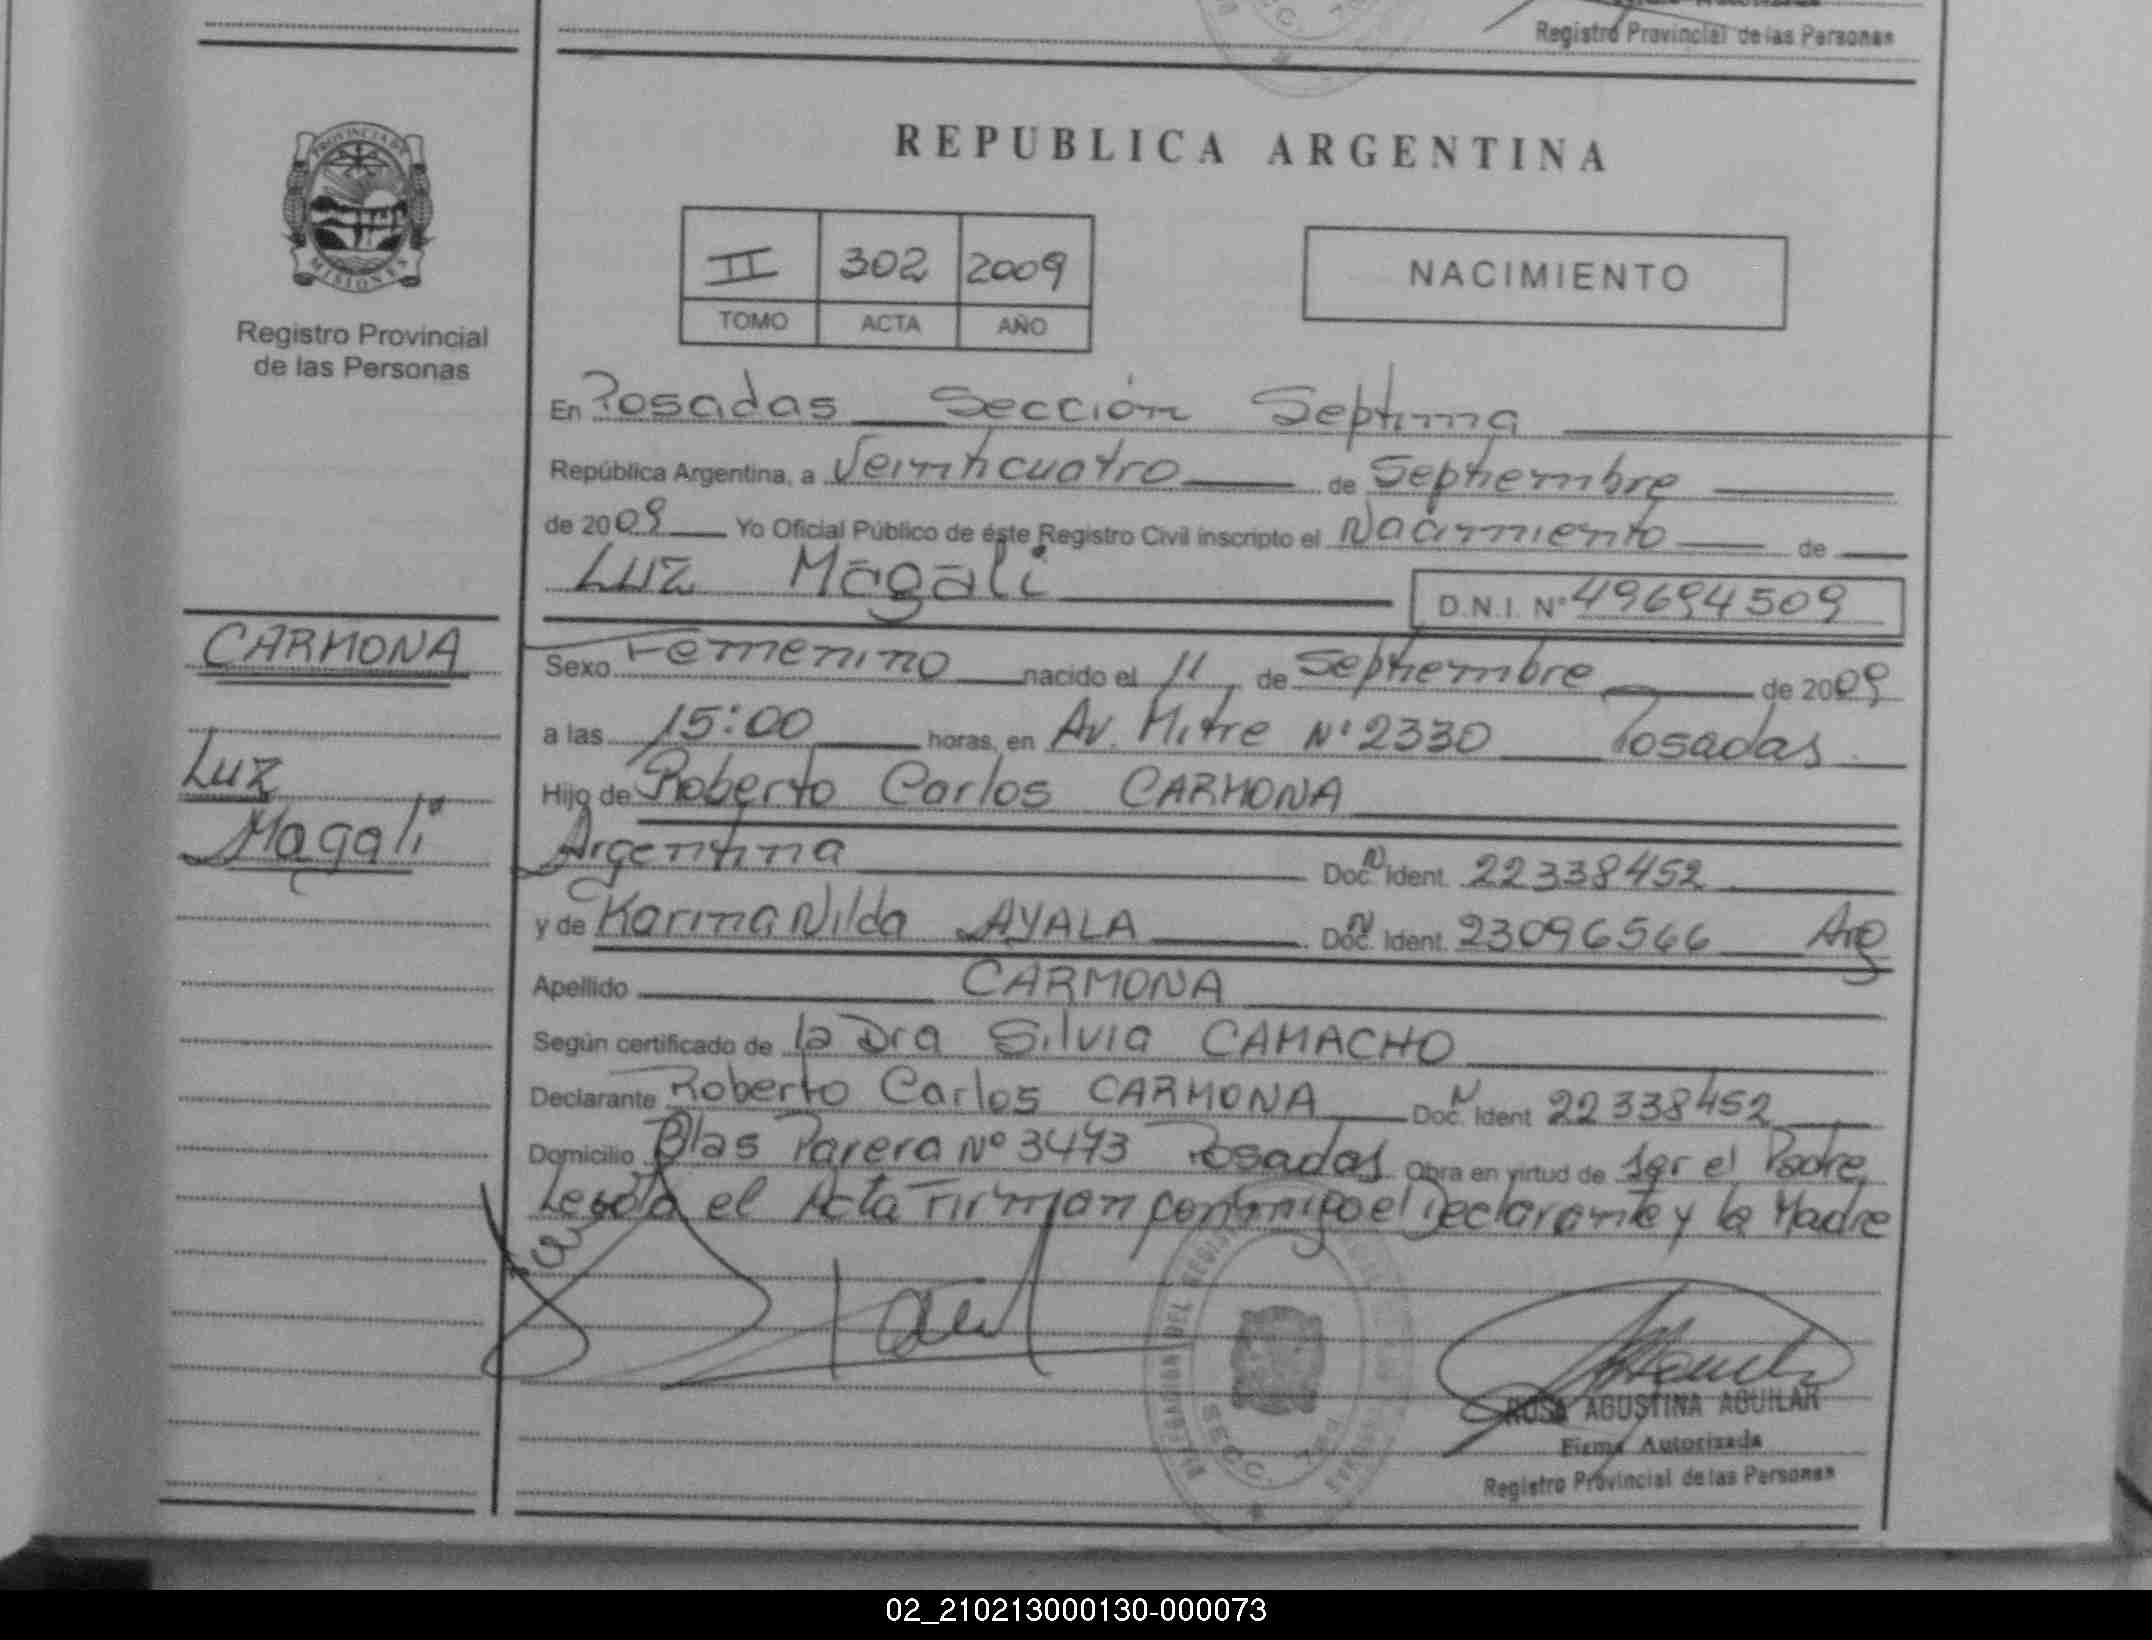 Registro Provincial de las Personas
PROVINCIA DE
MISIONES
Registro Provincial
de las Personas
REPUBLICA ARGENTINA
II 302 2009
TOMO ACTA AÑO
NACIMIENTO
En Posadas Sección Septima
República Argentina, a Veinticuatro de Septiembre
de 2009 Yo Oficial Público de éste Registro Civil inscripto el Nacimiento de
Luz Magali
D.N.I. Nº 49694509
CARMONA
Luz
Magali
Sexo Femenino nacido el 11 de Septiembre de 2009
a las 15:00 horas, en Av. Mitre Nº 2330 Posadas
Hijo de Roberto Carlos CARMONA
Argentina Doc. N Ident. 22338452
y de Karina Nilda AYALA Doc. N Ident. 23096566 Arg
Apellido CARMONA
Según certificado de la Dra Silvia CAMACHO
Declarante Roberto Carlos CARMONA Doc. N Ident 22338452
Domicilio Blas Parera Nº 3473 Posadas Obra en virtud de ser el Padre,
Leída el Acta Firman conmigo el Declarante y la Madre
SECC. 7ma
ROSA AGUSTINA AGUILAR
Firma Autorizada
Registro Provincial de las Personas
02_210213000130-000073